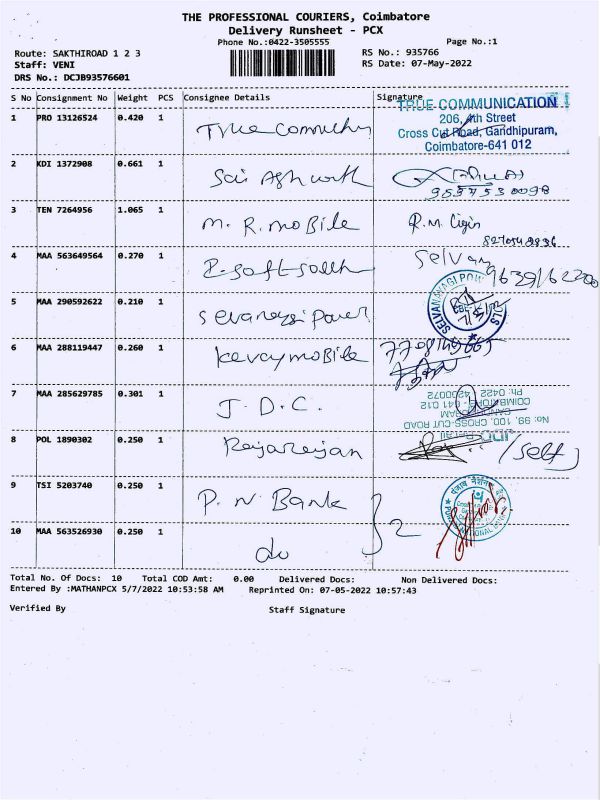 THE PROFESSIONAL COURIERS, Coimbatore
Delivery Runsheet - PCX
Phone No.:0422-3505555 Page No.:1
Route: SAKTHIROAD 1 2 3 RS No.: 935766
Staff: VENI RS Date: 07-May-2022
DRS No.: DCJB93576601
S No Consignment No Weight PCS Consignee Details Signature
1 PRO 13126524 0.420 1 True TRUE COMMUNICATION
206, 4th Street
Cross Cut Road, Gandhipuram,
Coimbatore-641 012
2 KDI 1372908 0.661 1 Sai
3 TEN 7264956 1.065 1 M. R. mobile
4 MAA 563649564 0.270 1 Selvan
5 MAA 290592622 0.210 1 power
6 MAA 288119447 0.260 1 kevcy mobile
7 MAA 285629785 0.301 1 J. D. C. No: 99, 100, CROSS-CUT ROAD
COIMBATORE - 641 012
Ph: 0422 4200072
8 POL 1890302 0.250 1 Rajarajan (self)
9 TSI 5203740 0.250 1 P. N Bank 2
10 MAA 563526930 0.250 1 do
Total No. Of Docs: 10 Total COD Amt: 0.00 Delivered Docs: Non Delivered Docs:
Entered By :MATHANPCX 5/7/2022 10:53:58 AM Reprinted On: 07-05-2022 10:57:43
Verified By Staff Signature